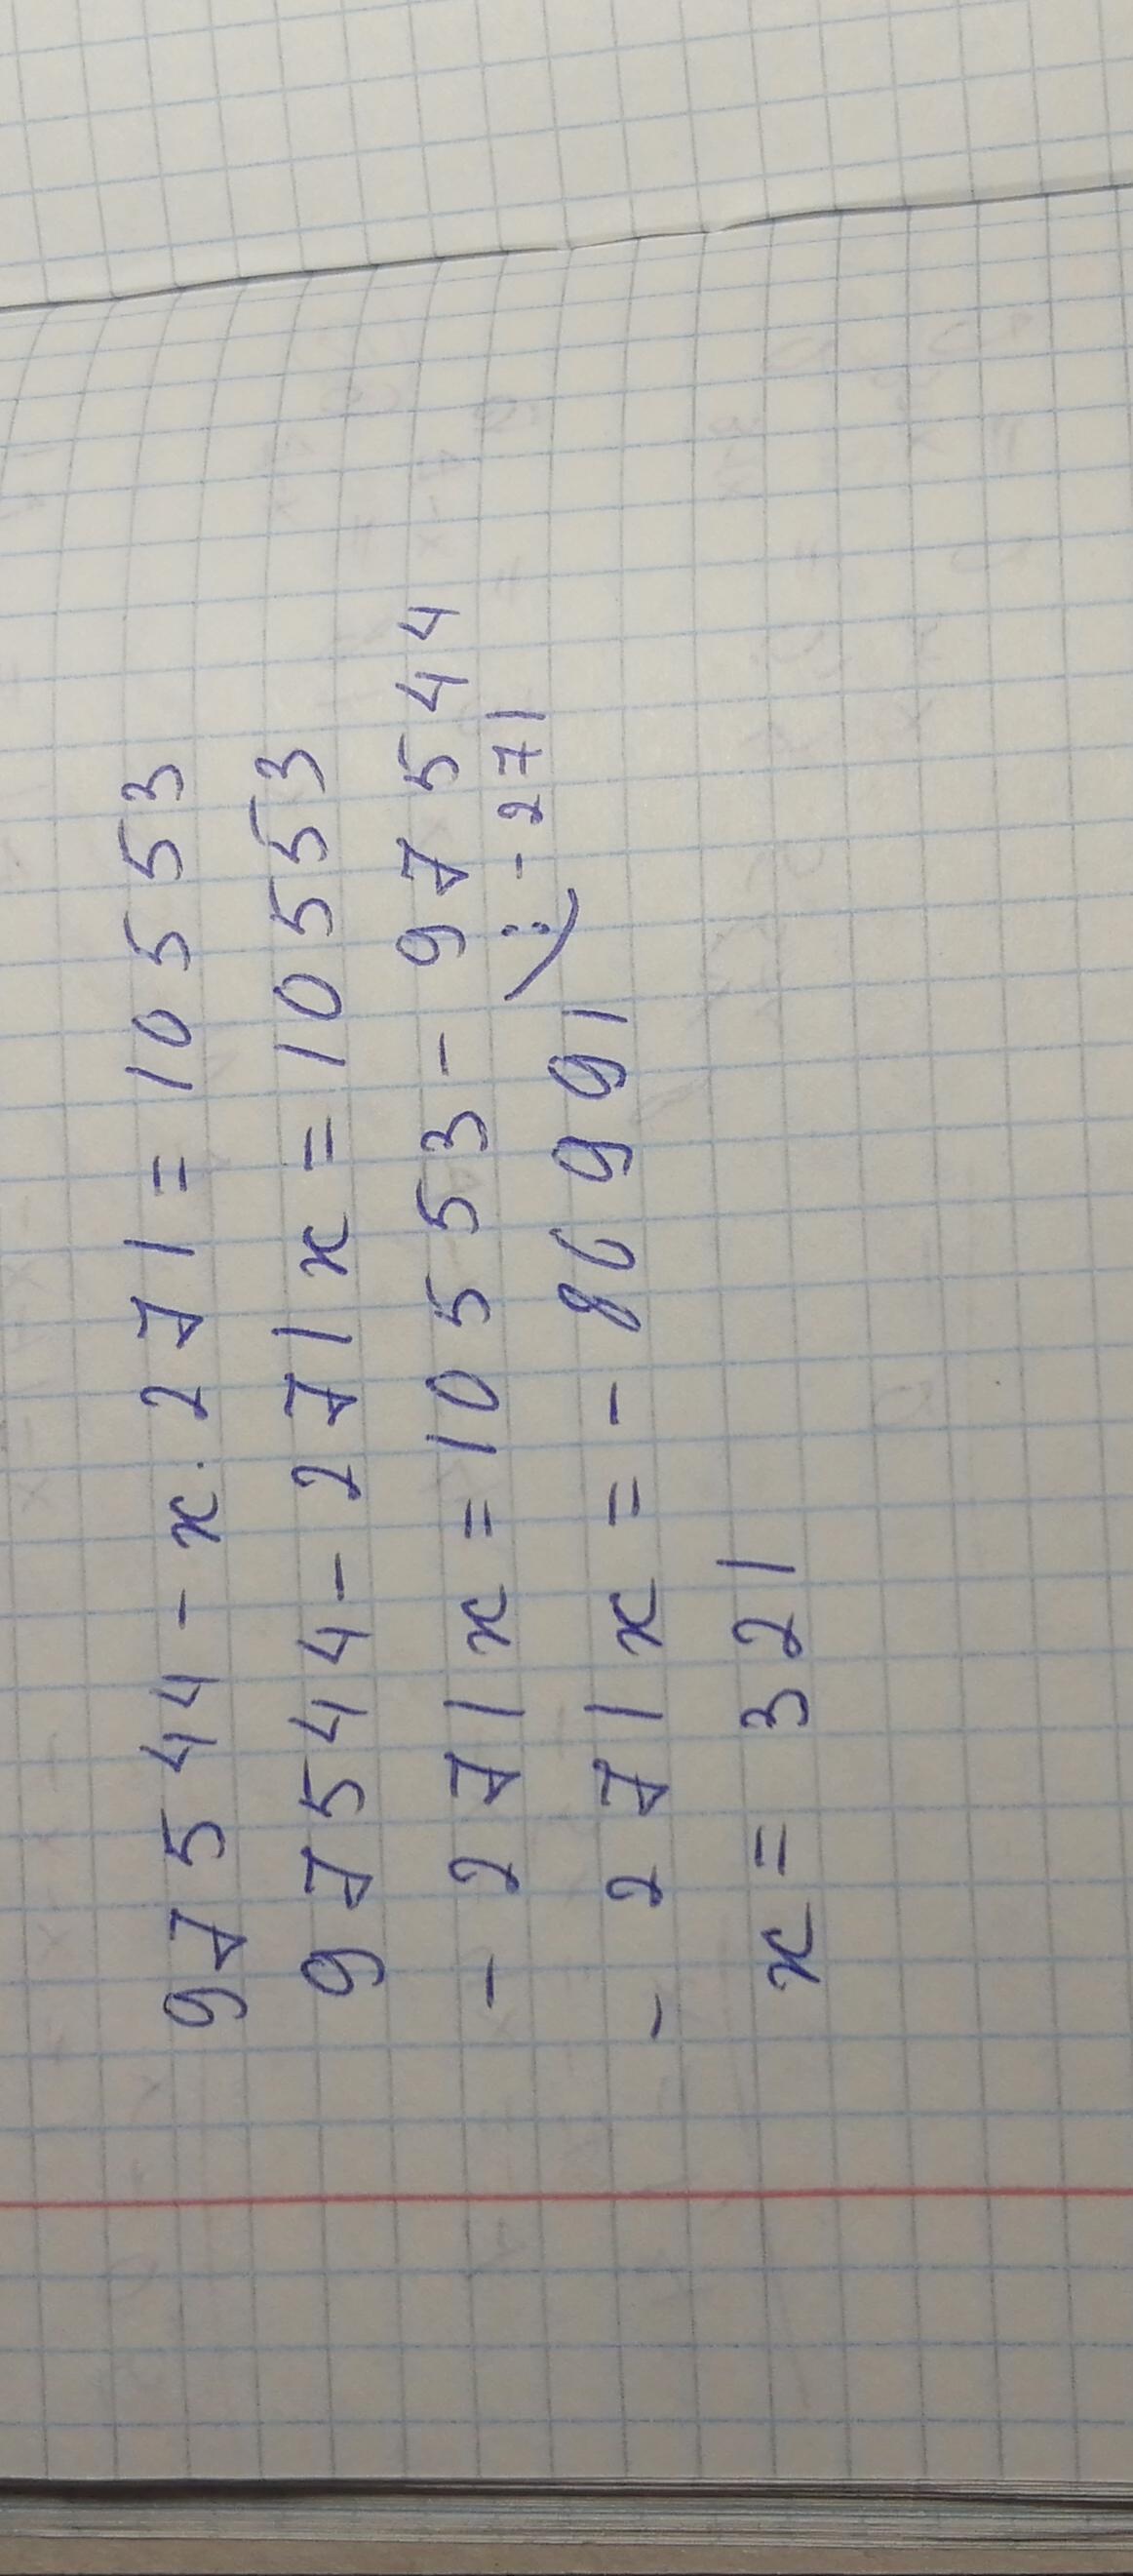 97544 - x · 271 = 10553
97544 - 271x = 10553
- 271x = 10553 - 97544
- 271x = - 86991 \ : - 271
x = 321